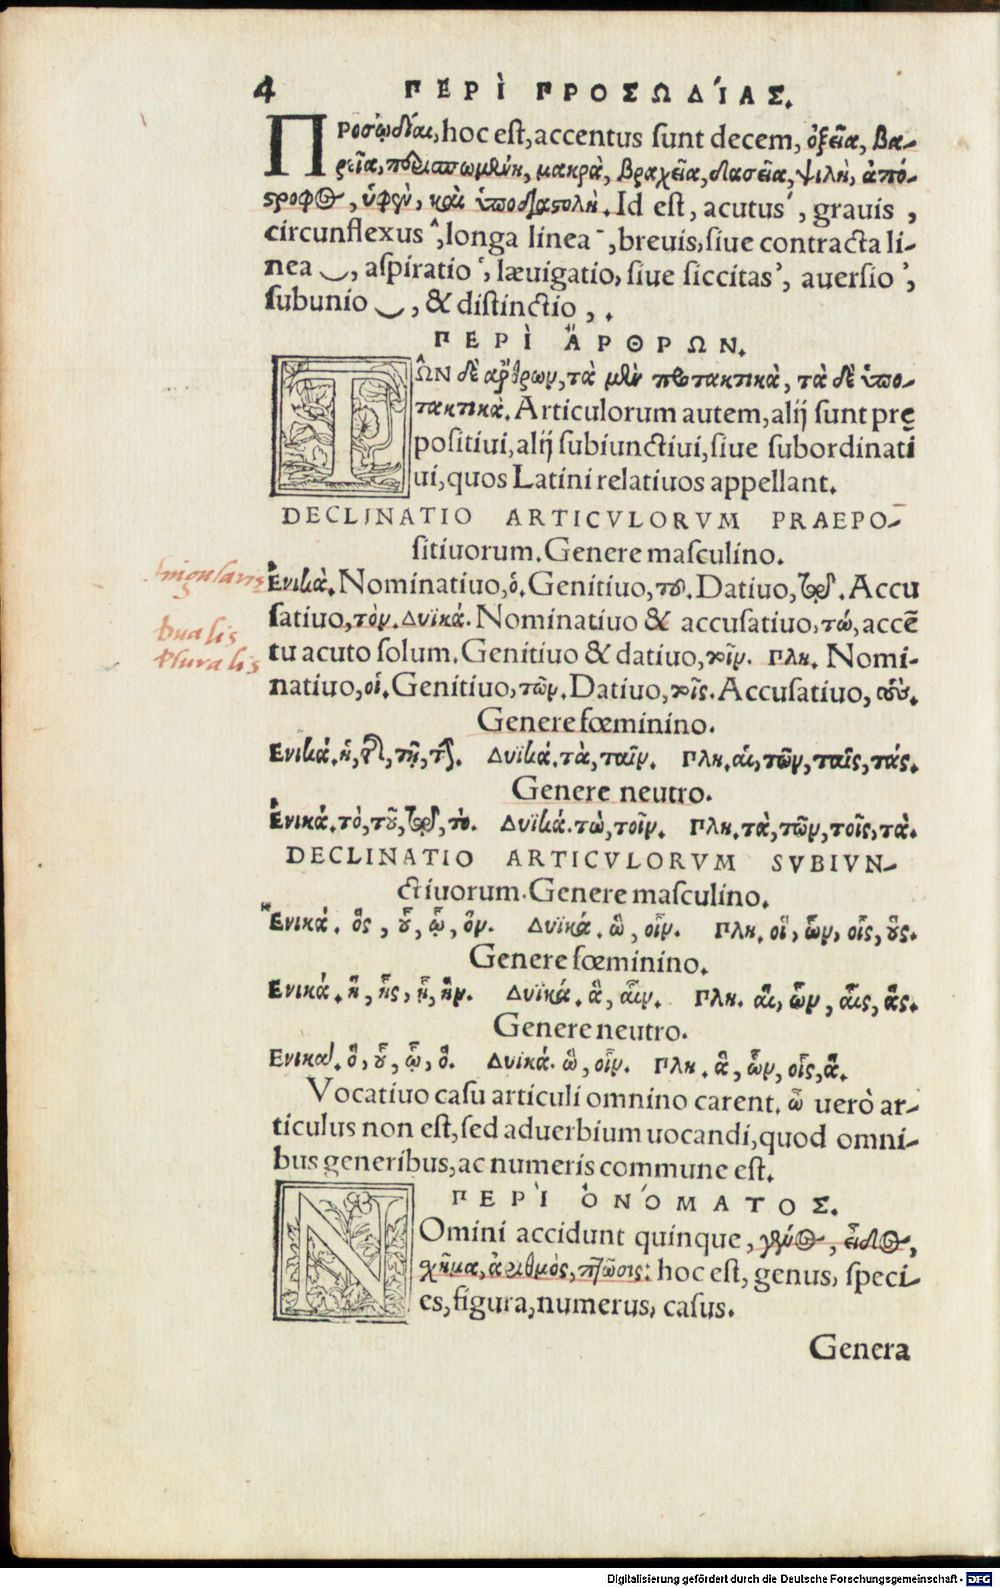 4 ΠΕΡῚ ΠΡΟΣΩΔΊΑΣ.
ΠΡοσῳδίαι, hoc est, accentus sunt decem, ὀξεῖα, βα-
ρεῖα, περισπωμένη, μακρὰ, βραχεῖα, δασεῖα, ψιλὴ, ἀπό-
στροφος, ὑφὲν, καὶ ὑποδιαστολὴ. Id est, acutus ´, grauis ,
circunflexus ^, longa linea ¯, breuis, siue contracta li-
nea ‿, aspiratio ʽ, læuigatio, siue siccitas ʼ, auersio ʼ,
subunio ‿, & distinctio , .
ΠΕΡῚ ἌΡΘΡΩΝ.
ΤῶΝ δὲ ἄρθρων, τὰ μὲν προτακτικὰ, τὰ δὲ ὑπο-
τακτικὰ. Articulorum autem, alij sunt prę
positiui, alij subiunctiui, siue subordinati
ui, quos Latini relatiuos appellant.
DECLINATIO ARTICVLORVM PRAEPO-
sitiuorum. Genere masculino.
Singularis
Ἑνικὰ. Nominatiuo, ὁ. Genitiuo, τοῦ. Datiuo, τῷ. Accu
satiuo, τὸν. Δυϊκά. Nominatiuo & accusatiuo, τώ, accē
Dualis
tu acuto solum. Genitiuo & datiuo, τοῖν. Πλη. Nomi-
Pluralis
natiuo, οἱ. Genitiuo, τῶν. Datiuo, τοῖς. Accusatiuo, τοὺς.
Genere fœminino.
Ἑνικά. ἡ, τῆς, τῇ, τὴν. Δυϊκά. τὰ, ταῖν. Πλη. αἱ, τῶν, ταῖς, τάς.
Genere neutro.
Ἑνικά. τὸ, τοῦ, τῷ, τὸ. Δυϊκά. τὼ, τοῖν. Πλη. τὰ, τῶν, τοῖς, τὰ.
DECLINATIO ARTICVLORVM SVBIVN-
ctiuorum. Genere masculino.
Ἑνικά. ὃς, οὗ, ᾧ, ὃν. Δυϊκά. ὣ, οἷν. Πλη. οἳ, ὧν, οἷς, οὓς.
Genere fœminino.
Ἑνικά. ἣ, ἧς, ᾗ, ἣν. Δυϊκά. ἃ, αἷν. Πλη. αἳ, ὧν, αἷς, ἃς.
Genere neutro.
Ἑνικά. ὃ, οὗ, ᾧ, ὃ. Δυϊκά. ὣ, οἷν. Πλη. ἃ, ὧν, οἷς, ἃ.
Vocatiuo casu articuli omnino carent. ὦ uerò ar-
ticulus non est, sed aduerbium uocandi, quod omni-
bus generibus, ac numeris commune est.
ΠΕΡῚ ὈΝΌΜΑΤΟΣ.
NOmini accidunt quinque, γένος, εἶδος,
χῆμα, ἀριθμὸς, πτῶσις: hoc est, genus, speci-
es, figura, numerus, casus.
Genera
Digitalisierung gefördert durch die Deutsche Forschungsgemeinschaft - DFG